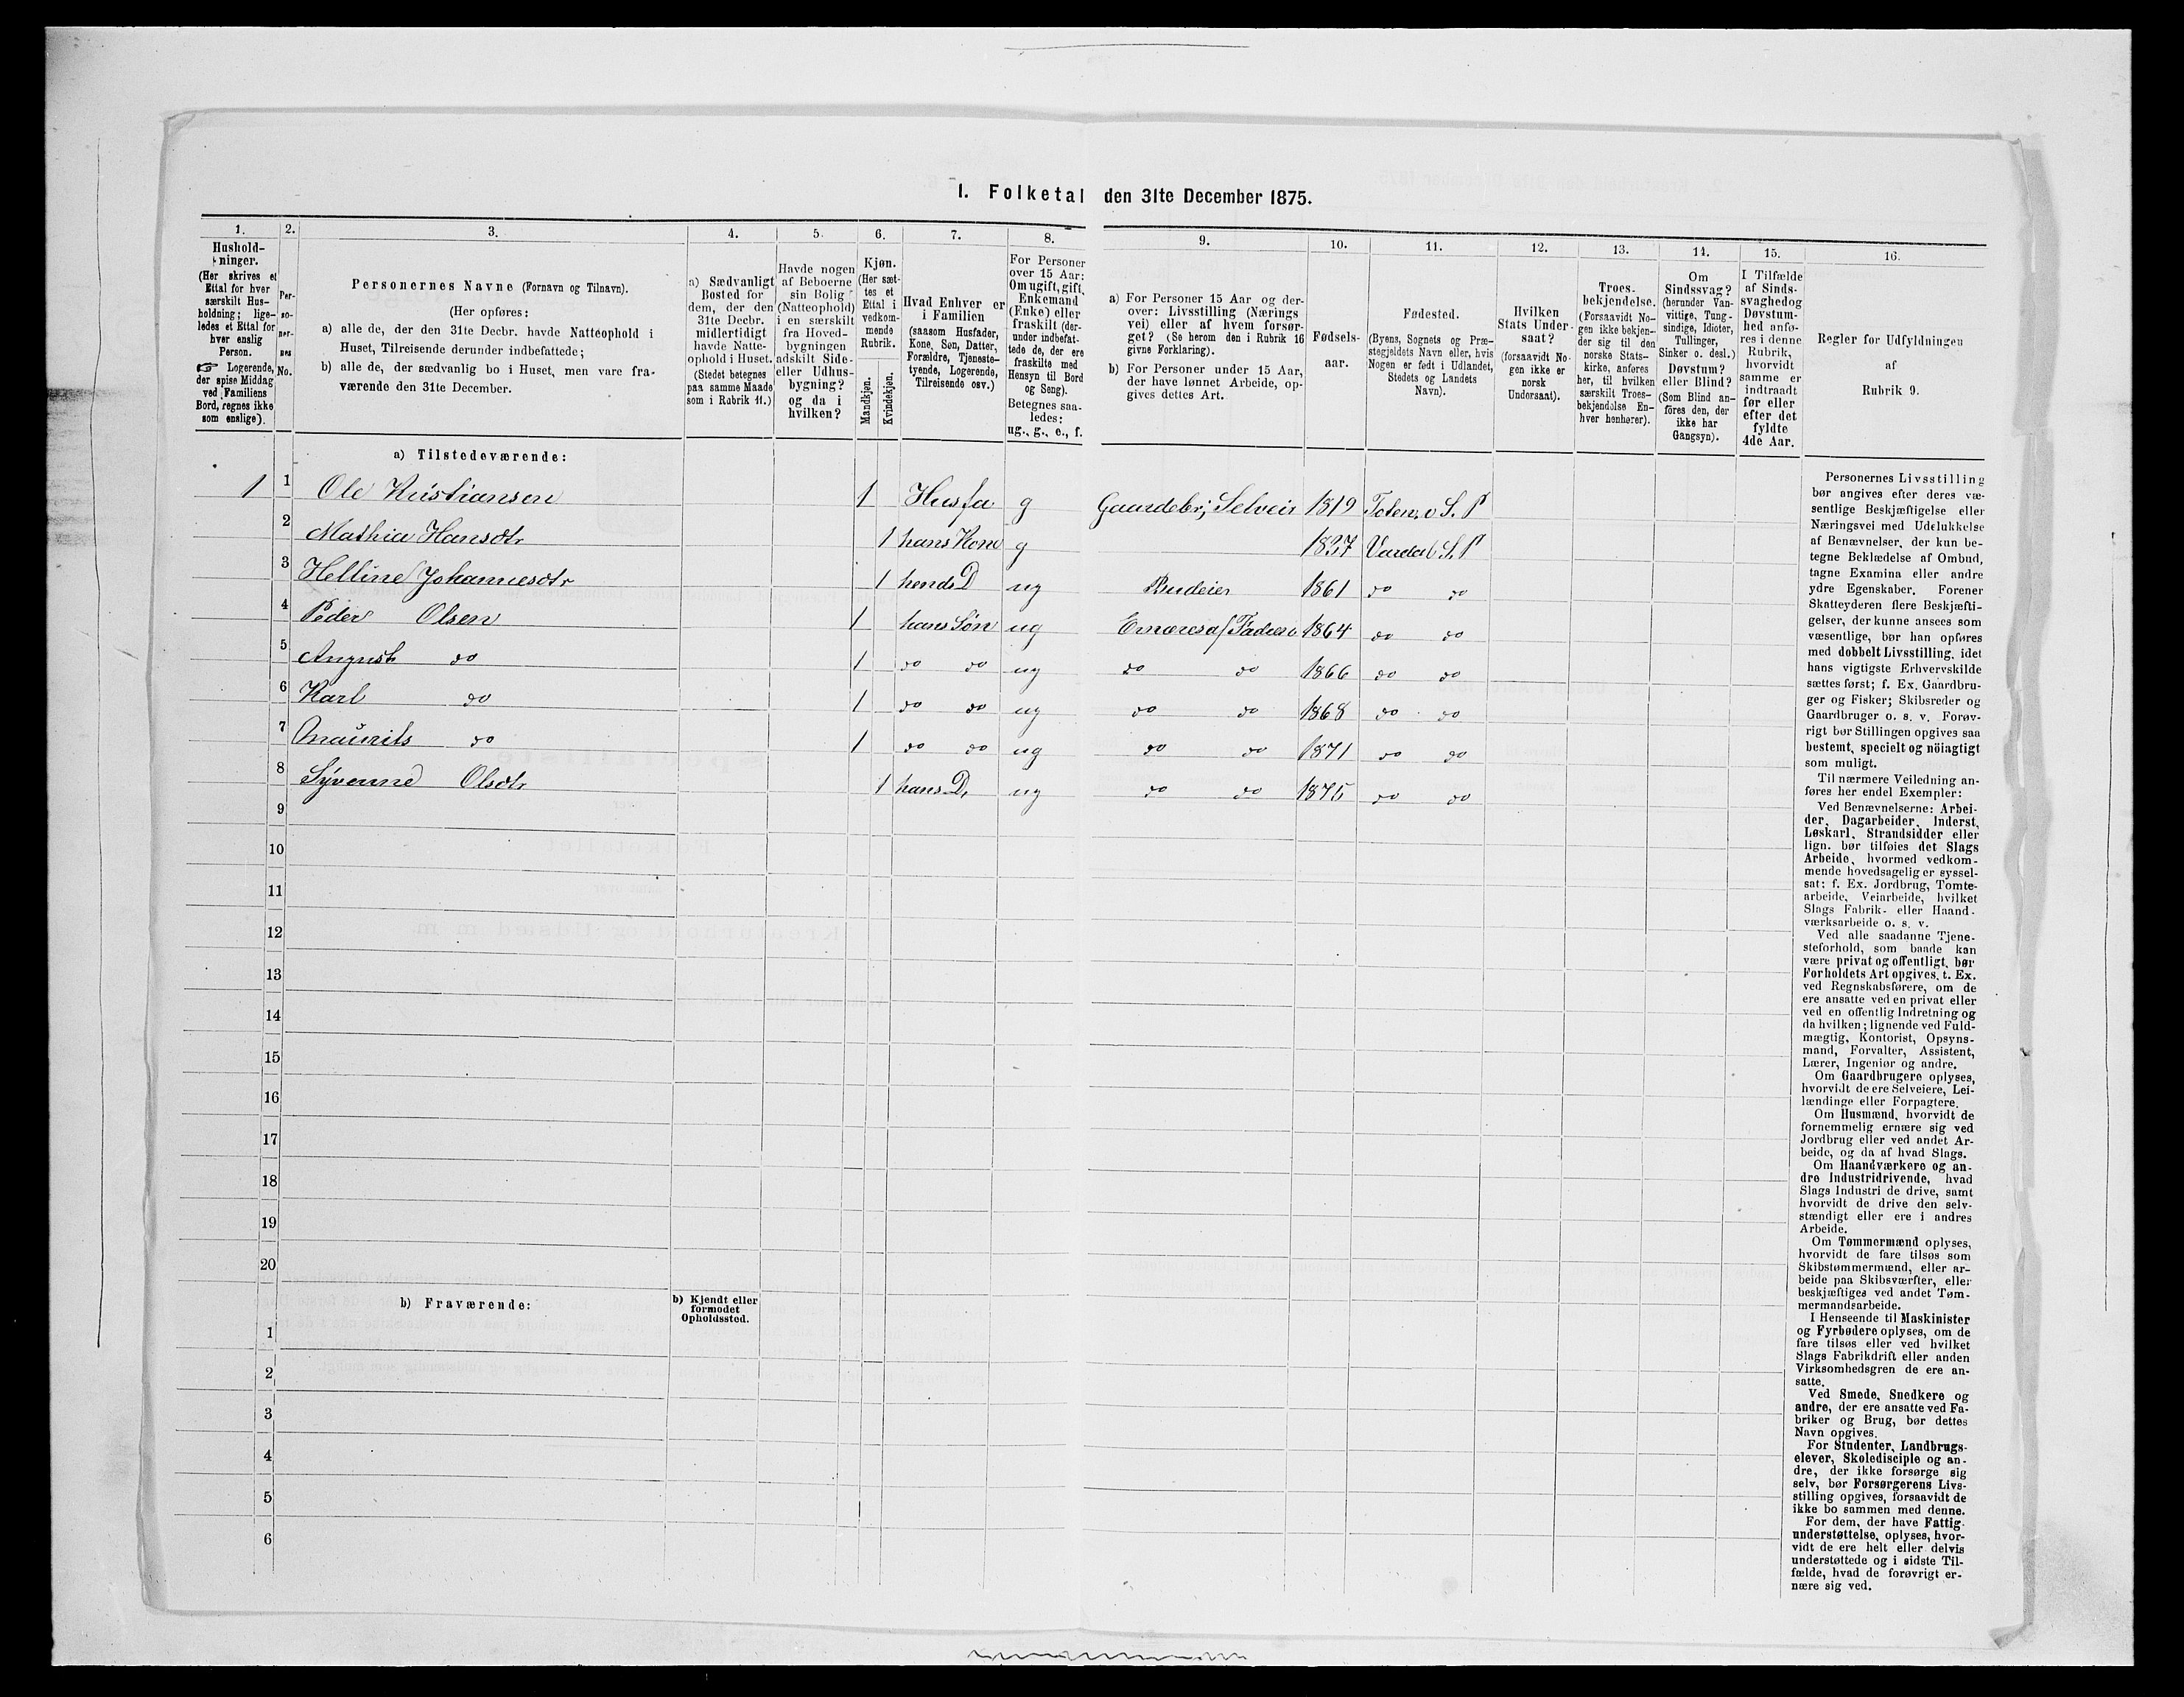 I. Folketal den 31te December 1875.
1.
Hushold-
ninger.
(Her skrives et
Ettal for hver
særskilt Hus-
holdning; lige-
ledes et Ettal for
hver enslig
Person.
☞ Logerende,
der spise Middag
ved Familiens
Bord, regnes ikke
som enslige).
2.
Per-
so-
ner-
nes
No.
3.
Personernes Navne (Fornavn og Tilnavn).
(Her opføres:
a) alle de, der den 31te Decbr. havde Natteophold i
Huset, Tilreisende derunder indbefattede;
b) alle de, der sædvanlig bo i Huset, men vare fra-
værende den 31te December.
4.
a) Sædvanligt
Bosted for
dem, der den
31te Decbr.
midlertidigt
havde Natte-
ophold i Huset.
(Stedet betegnes
paa samme Maade
som i Rubrik 11.)
5.
Havde nogen
af Beboerne
sin Bolig
(Natteophold)
i en særskilt
fra Hoved-
bygningen
adskilt Side-
eller Udhus-
bygning?
og da i
hvilken?
6.
Kjøn.
(Her sæt-
tes et
Ettal i
vedkom-
mende
Rubrik.
Mandkjøn.
Kvindekjøn.
7.
Hvad Enhver er
i Familien
(saasom Husfader,
Kone, Søn, Datter,
Forældre, Tjeneste-
tyende, Logerende,
Tilreisende osv.)
8.
For Personer
over 15 Aar:
Om ugift, gift,
Enkemand
(Enke) eller
fraskilt (der-
under indbefat-
tede de, der ere
fraskilte med
Hensyn til Bord
og Seng).
Betegnes saa-
ledes:
ug., g., e., f.
9.
a) For Personer 15 Aar og der-
over: Livsstilling (Nærings
vei) eller af hvem forsør-
get? (Se herom den i Rubrik 16
givne Forklaring).
b) For Personer under 15 Aar,
der have lønnet Arbeide, op-
gives dettes Art.
10.
Fødsels-
aar.
11.
Fødested.
(Byens, Sognets og Præ-
stegjeldets Navn eller, hvis
Nogen er født i Udlandet,
Stedets og Landets
Navn).
12.
Hvilken
Stats Under-
saat?
(forsaavidt No-
gen ikke er
norsk
Undersaat).
13.
Troes-
bekjendelse.
(Forsaavidt No-
gen ikke bekjen-
der sig til den
norske Stats-
kirke, anføres
her, til hvilken
særskilt Troes-
bekjendelse En-
hver henhører).
14.
Om
Sindssvag?
(herunder Van-
vittige, Tung-
sindige, Idioter,
Tullinger,
Sinker o. desl.)
Døvstum?
eller Blind?
(Som Blind an-
føres den, der
ikke har
Gangsyn).
15.
I Tilfælde
af Sinds-
svaghed og
Døvstum-
hed anfø-
res i denne
Rubrik,
hvorvidt
samme er
indtraadt
før eller
efter det
fyldte
4de Aar.
16.
Regler for Udfyldningen
af
Rubrik 9.
a) Tilstedeværende:
1 1 Ole Kristiansen 1 Husfa g Gaardebr; Selveier 1819 Toten, o S. P
2 Mathia Hansdtr 1 hans Kone g 1837 Vardal S. P
3 Helline Johannesdtr 1 hends D ug Budeier 1861 do do
4 Peder Olsen 1 hans Søn ug Ernæres af Faderen 1864 do do
5 August do 1 do do ug do do 1866 do do
6 Karl do 1 do do ug do do 1868 do do
7 Maurits do 1 do do ug do do 1871 do do
8 Syverine Olsdtr 1 hans D, ug do do 1875 do do
9
10
11
12
13
14
15
16
17
18
19
20
b) Fraværende:
b) Kjendt eller
formodet
Opholdssted.
1
2
3
4
5
6
Personernes Livsstilling
bør angives efter deres væ-
sentlige Beskjæftigelse eller
Næringsvei med Udelukkelse
af Benævnelser, der kun be-
tegne Beklædelse af Ombud,
tagne Examina eller andre
ydre Egenskaber. Forener
Skatteyderen flere Beskjæfti-
gelser, der kunne ansees som
væsentlige, bør han opføres
med dobbelt Livsstilling, idet
hans vigtigste Erhvervskilde
sættes først; f. Ex. Gaardbru-
ger og Fisker; Skibsreder og
Gaardbruger o. s. v. Forøv-
rigt bør Stillingen opgives saa
bestemt, specielt og nöiagtigt
som muligt.
Til nærmere Veiledning an-
føres her endel Exempler:
Ved Benævnelserne: Arbei-
der, Dagarbeider, Inderst,
Løskarl, Strandsidder eller
lign. bør tilføies det Slags
Arbeide, hvormed vedkom-
mende hovedsagelig er syssel-
sat; f. Ex. Jordbrug, Tomte-
arbeide, Veiarbeide, hvilket
Slags Fabrik- eller Haand-
værksarbeide o. s. v.
Ved alle saadanne Tjene-
steforhold, som baade kan
være privat og offentligt, bør
Forholdets Art opgives, t. Ex.
ved Regnskabsførere, om de
ere ansatte ved en privat eller
ved en offentlig Indretning og
da hvilken; lignende ved Fuld-
mægtig, Kontorist, Opsyns-
mand, Forvalter, Assistent,
Lærer, Ingeniør og andre.
Om Gaardbrugere oplyses,
hvorvidt de ere Selveiere, Lei-
lændinge eller Forpagtere.
Om Husmænd, hvorvidt de
fornemmelig ernære sig ved
Jordbrug eller ved andet Ar-
beide, og da af hvad Slags.
Om Haandværkere og an-
dre Industridrivende, hvad
Slags Industri de drive, samt
hvorvidt de drive den selv-
stændigt eller ere i andres
Arbeide.
Om Tømmermænd oplyses,
hvorvidt de fare tilsøs som
Skibstømmermænd, eller ar-
beide paa Skibsværfter, eller
beskjæftiges ved andet Tøm-
mermandsarbeide.
I Henseende til Maskinister
og Fyrbødere oplyses, om de
fare tilsøs eller ved hvilket
Slags Fabrikdrift eller anden
Virksomhedsgren de ere an-
satte.
Ved Smede, Snedkere og
andre, der ere ansatte ved Fa-
briker og Brug, bør dettes
Navn opgives.
For Studenter, Landbrugs-
elever, Skoledisciple og an-
dre, der ikke forsørge sig
selv, bør Forsørgerens Livs-
stilling opgives, forsaavidt de
ikke bo sammen med denne.
For dem, der have Fattig-
understøttelse, oplyses, hvor-
vidt de ere helt eller delvis
understøttede og i sidste Til-
fælde, hvad de forøvrigt er-
nære sig ved.